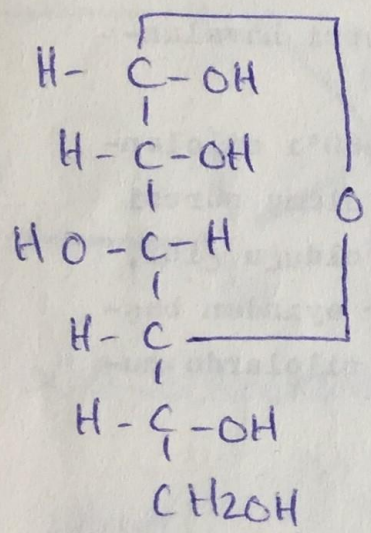 H- C-OH
H-C-OH
O
HO-C-H
H-C
H-C-OH
CH2OH